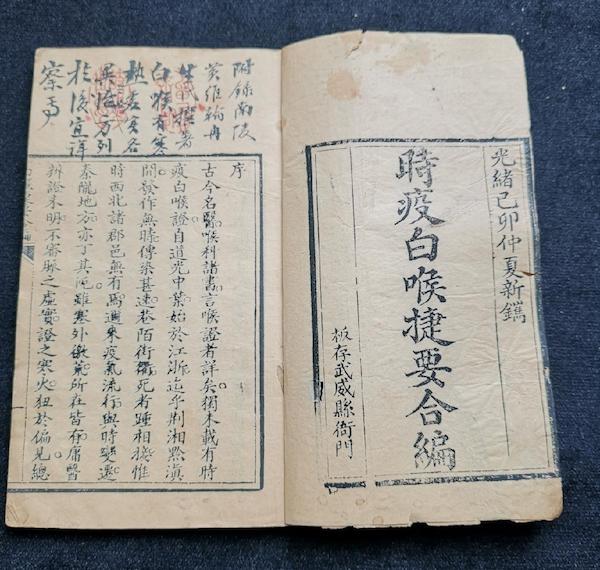 光緒己卯仲夏新鐫
時疫白喉捷要合編
板存武威縣衙門
附錄南陵
黄維翰冉
生氏撰者
白喉有寒
熱虛實各
異治方列
於後宜詳
察焉
序
古今名醫喉科諸書言喉證者詳矣獨未載有時
疫白喉證自道光中葉始於江浙迄乎荆湘黔滇
間發作無時傳染甚速巷陌街衢死者踵相接惟
時西北諸郡邑無有焉邇來疫氣流行與時變遷
秦隴地方亦丁其阨雖塞外徼荒所在皆有庸醫
辨證未明不審脈之虛實證之寒火狃於偏見總